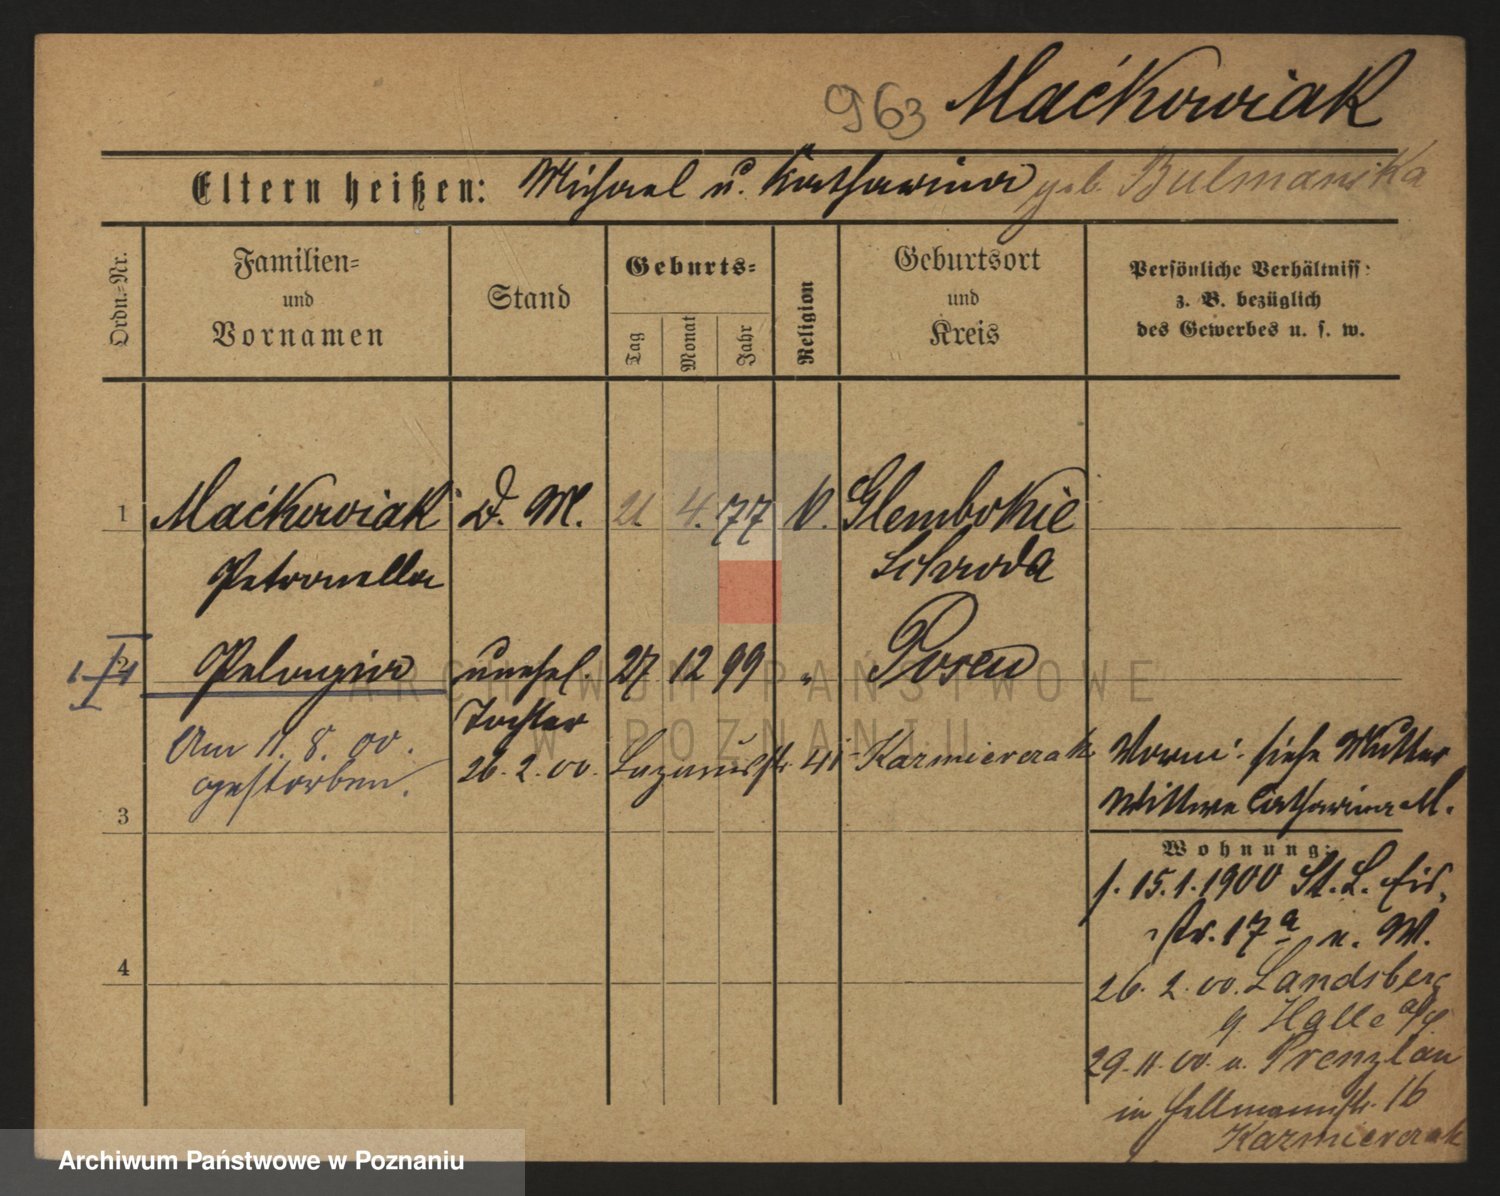 963 Maćkowiak
Eltern heißen: Michael u. Katharina geb. Bulmanska
Ordn.-Nr.
Familien-
und
Vornamen
Stand
Geburts-
Tag
Monat
Jahr
Religion
Geburtsort
und
Kreis
Persönliche Verhältniss:
z. B. bezüglich
des Gewerbes u. s. w.
1 Maćkowiak D. M. 21 4. 77 k. Glembokie
Petronella Schroda
2 Pelagia unehel. 27 12 99 " Posen
Tochter
Am 11. 8. 00. 26. 2. 00. Lazarusstr. 41 Kazmierczak
gestorben.
Vorm: siehe Mutter
Wittwe Catharina M.
3
Wohnung:
f. 15.1.1900 St. L.
str. 17a n. W.
4
26. 2. 00. Landsberg
g. Halle a/S.
29. 11. 00. n. Prenzlau
in str. 16
Kazmierczak
ARCHIWUM PAŃSTWOWE
W POZNANIU
Archiwum Państwowe w Poznaniu